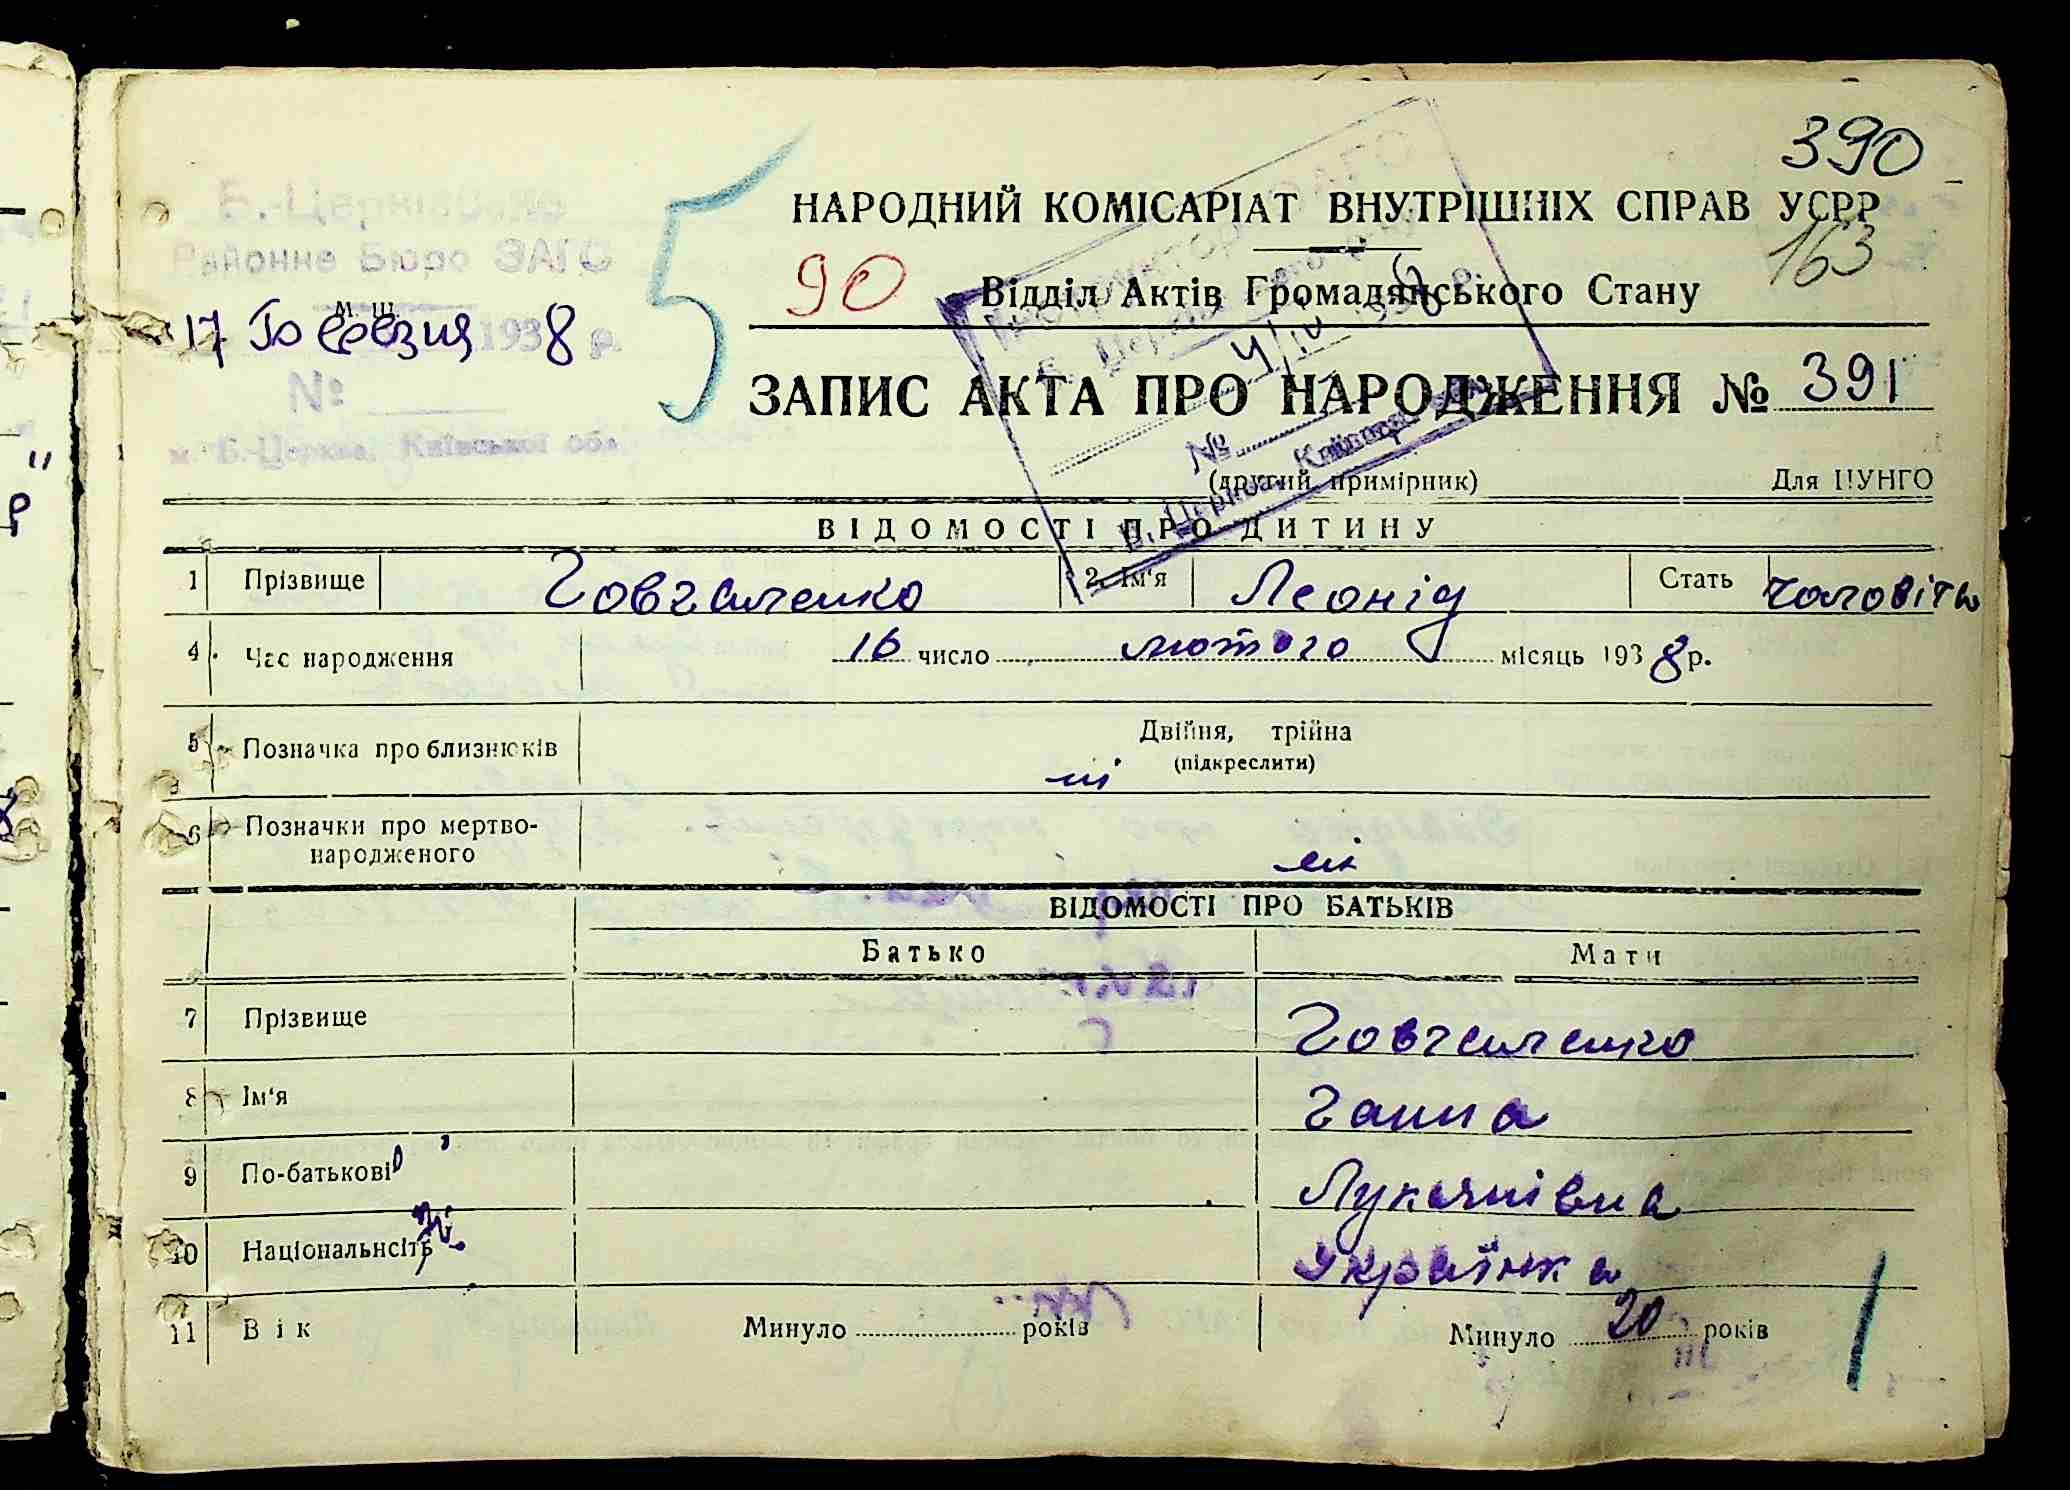 390
НАРОДНИЙ КОМІСАРІАТ ВНУТРІШНІХ СПРАВ УСРР
163
Б.-Церківське
Районне Бюро ЗАГС
5
90
Відділ Актів Громадянського Стану
17 Березня 1938 р.
№
м. Б.-Церква, Київської обл.
ЗАПИС АКТА ПРО НАРОДЖЕННЯ № 391
(другий примірник)
Для ЦУНГО
ВІДОМОСТІ ПРО ДИТИНУ
1 Прізвище Говгаленко 2. Ім'я Леонід Стать чоловіча
4 Час народження 16 число лютого місяць 1938 р.
5 Позначка про близнюків Двійня, трійна
(підкреслити)
ні
6 Позначки про мертво-
народженого ні
ВІДОМОСТІ ПРО БАТЬКІВ
Батько Мати
7 Прізвище Говгаленко
8 Ім'я Ганна
9 По-батькові Лукянівна
10 Національність Українка
11 Вік Минуло років Минуло 20 років